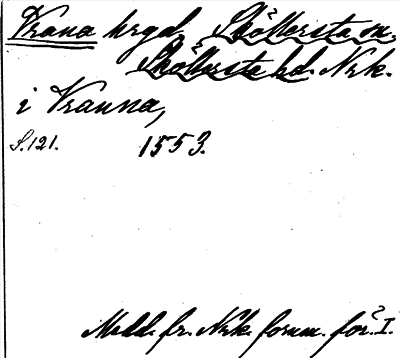 Vrana hrgd, Sköllersta sn,
Sköllersta hd. Nrk.
i Vranna,
S. 121. 1553.
Medd. fr. Nrk. fornm. för. I.